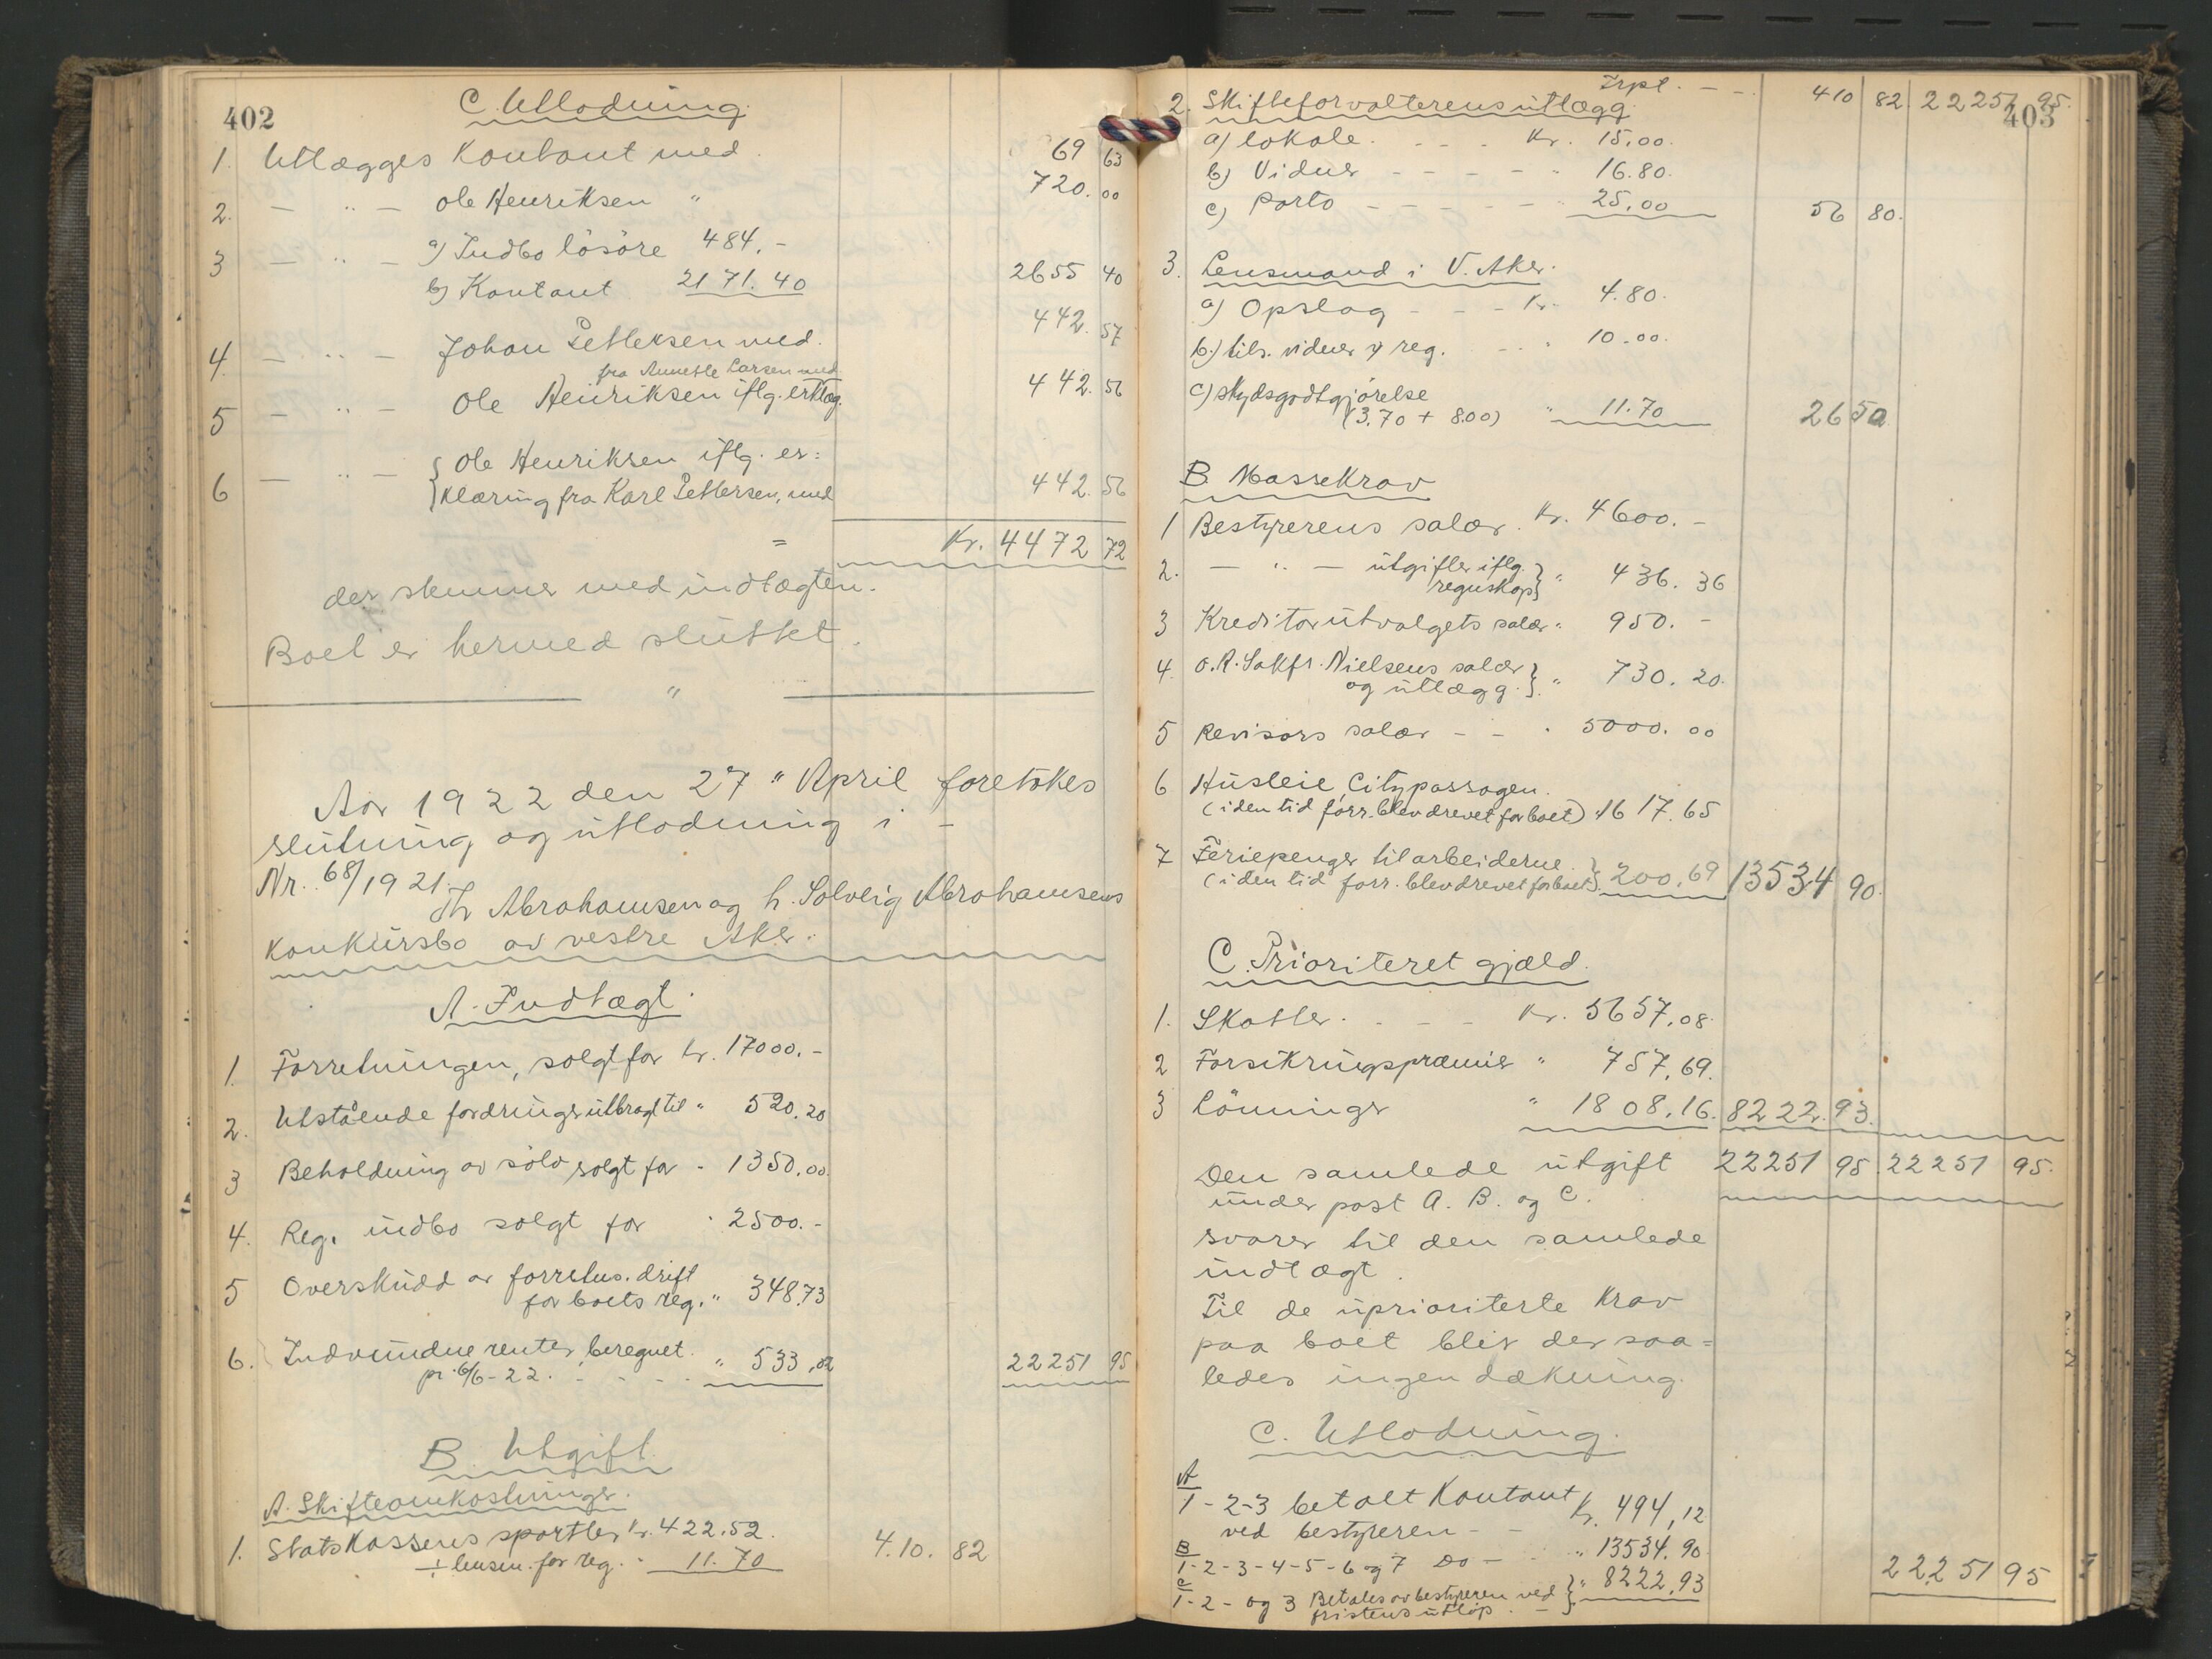 402
C. Utlodning.
1. Utlægges Kontant med. 69 63
2. — " — Ole Henriksen " 720. 00
3 — " — a) Indbo løsøre 484.-
b) Kontant 2171.40 2655 40
4. — " — Johan Pettersen med. 442. 57
fra Annette Larsen med
5 — " — Ole Henriksen iflg. erklæg. 442. 56
6 — " — { Ole Henriksen iflg. er=
klæring fra Karl Pettersen, med 442. 56
= Kr. 4472 72
der stemmer med indtægten.
Boet er hermed sluttet.
"
Aar 1922 den 27" April foretokes
slutning og utlodning i -
Nr. 68/1921.
Th Abrahamsen og h. Solveig Abrahamsens
Konkursbo av vestre Aker.
A. Indtægt.
1. Forretningen, solgt for kr. 17000.-
2. Utstående fordringer utbragt til " 520.20
3 Beholdning av sølv solgt for - 1350.00
4. Reg. indbo solgt for " 2500.-
5 Overskudd av forretns. drift
for boets reg. " 348.73
6. Indvundne renter, beregnet
pr. 6/6-22. - - - " 533,02 22251 95
B. Utgift.
A. Skifteomkostninger.
1. Statskassens sportler Kr. 422.52.
÷ lensm. for reg. - 11.70 4.10. 82
403
Trpt. - - 410 82. 22251 95.
2. Skifteforvalterens utlægg.
a) lokale. - - - Kr. 15.00.
b) Vidner - - - - " 16.80.
c) Porto - - - - - " 25.00 56 80.
3. Lensmand i V. Aker.
a) Opslag - - - Kr. 4.80.
b.) tils. vidner v/ reg. - - " 10.00.
c) skydsgodtgjørelse
(3.70 + 8.00) " 11.70 26 50
B Massekrav
1 Bestyrerens salær. Kr. 4600.-
2. — " — utgifter iflg.
regnskap } " 436. 36
3 Kreditorutvalgets salær " 950.-
4. O.R. Sakfr. Nielsens salær
og utlægg. } " 730. 20.
5 Revisors salær - - . 5000. 00
6 Husleie, Citypassagen.
(i den tid forr. blev drevet for boet) 1617.65
7 Feriepenger til arbeiderne.
(i den tid forr. blev drevet for boet) } 200.69 13534 90.
C. Prioriteret gjæld.
1. Skatter. - - - Kr. 5657.08.
2 Forsikringspræmier " 757.69.
3 Lønninger " 1808.16. 8222.93.
Den samlede utgift 22251 95. 22251 95.
under post A. B. og C.
svarer til den samlede
indtægt.
Til de uprioriterte krav
paa boet blir der saa=
ledes ingen dækning.
C. Utlodning.
A
1-2-3 betalt Kontant
ved bestyreren - - Kr. 494,12
B
1-2-3-4-5-6 og 7 Do - " 13534.90.
C
1-2- og 3 Betales av bestyreren ved
fristens utløp. - } " 8222,93 22251 95